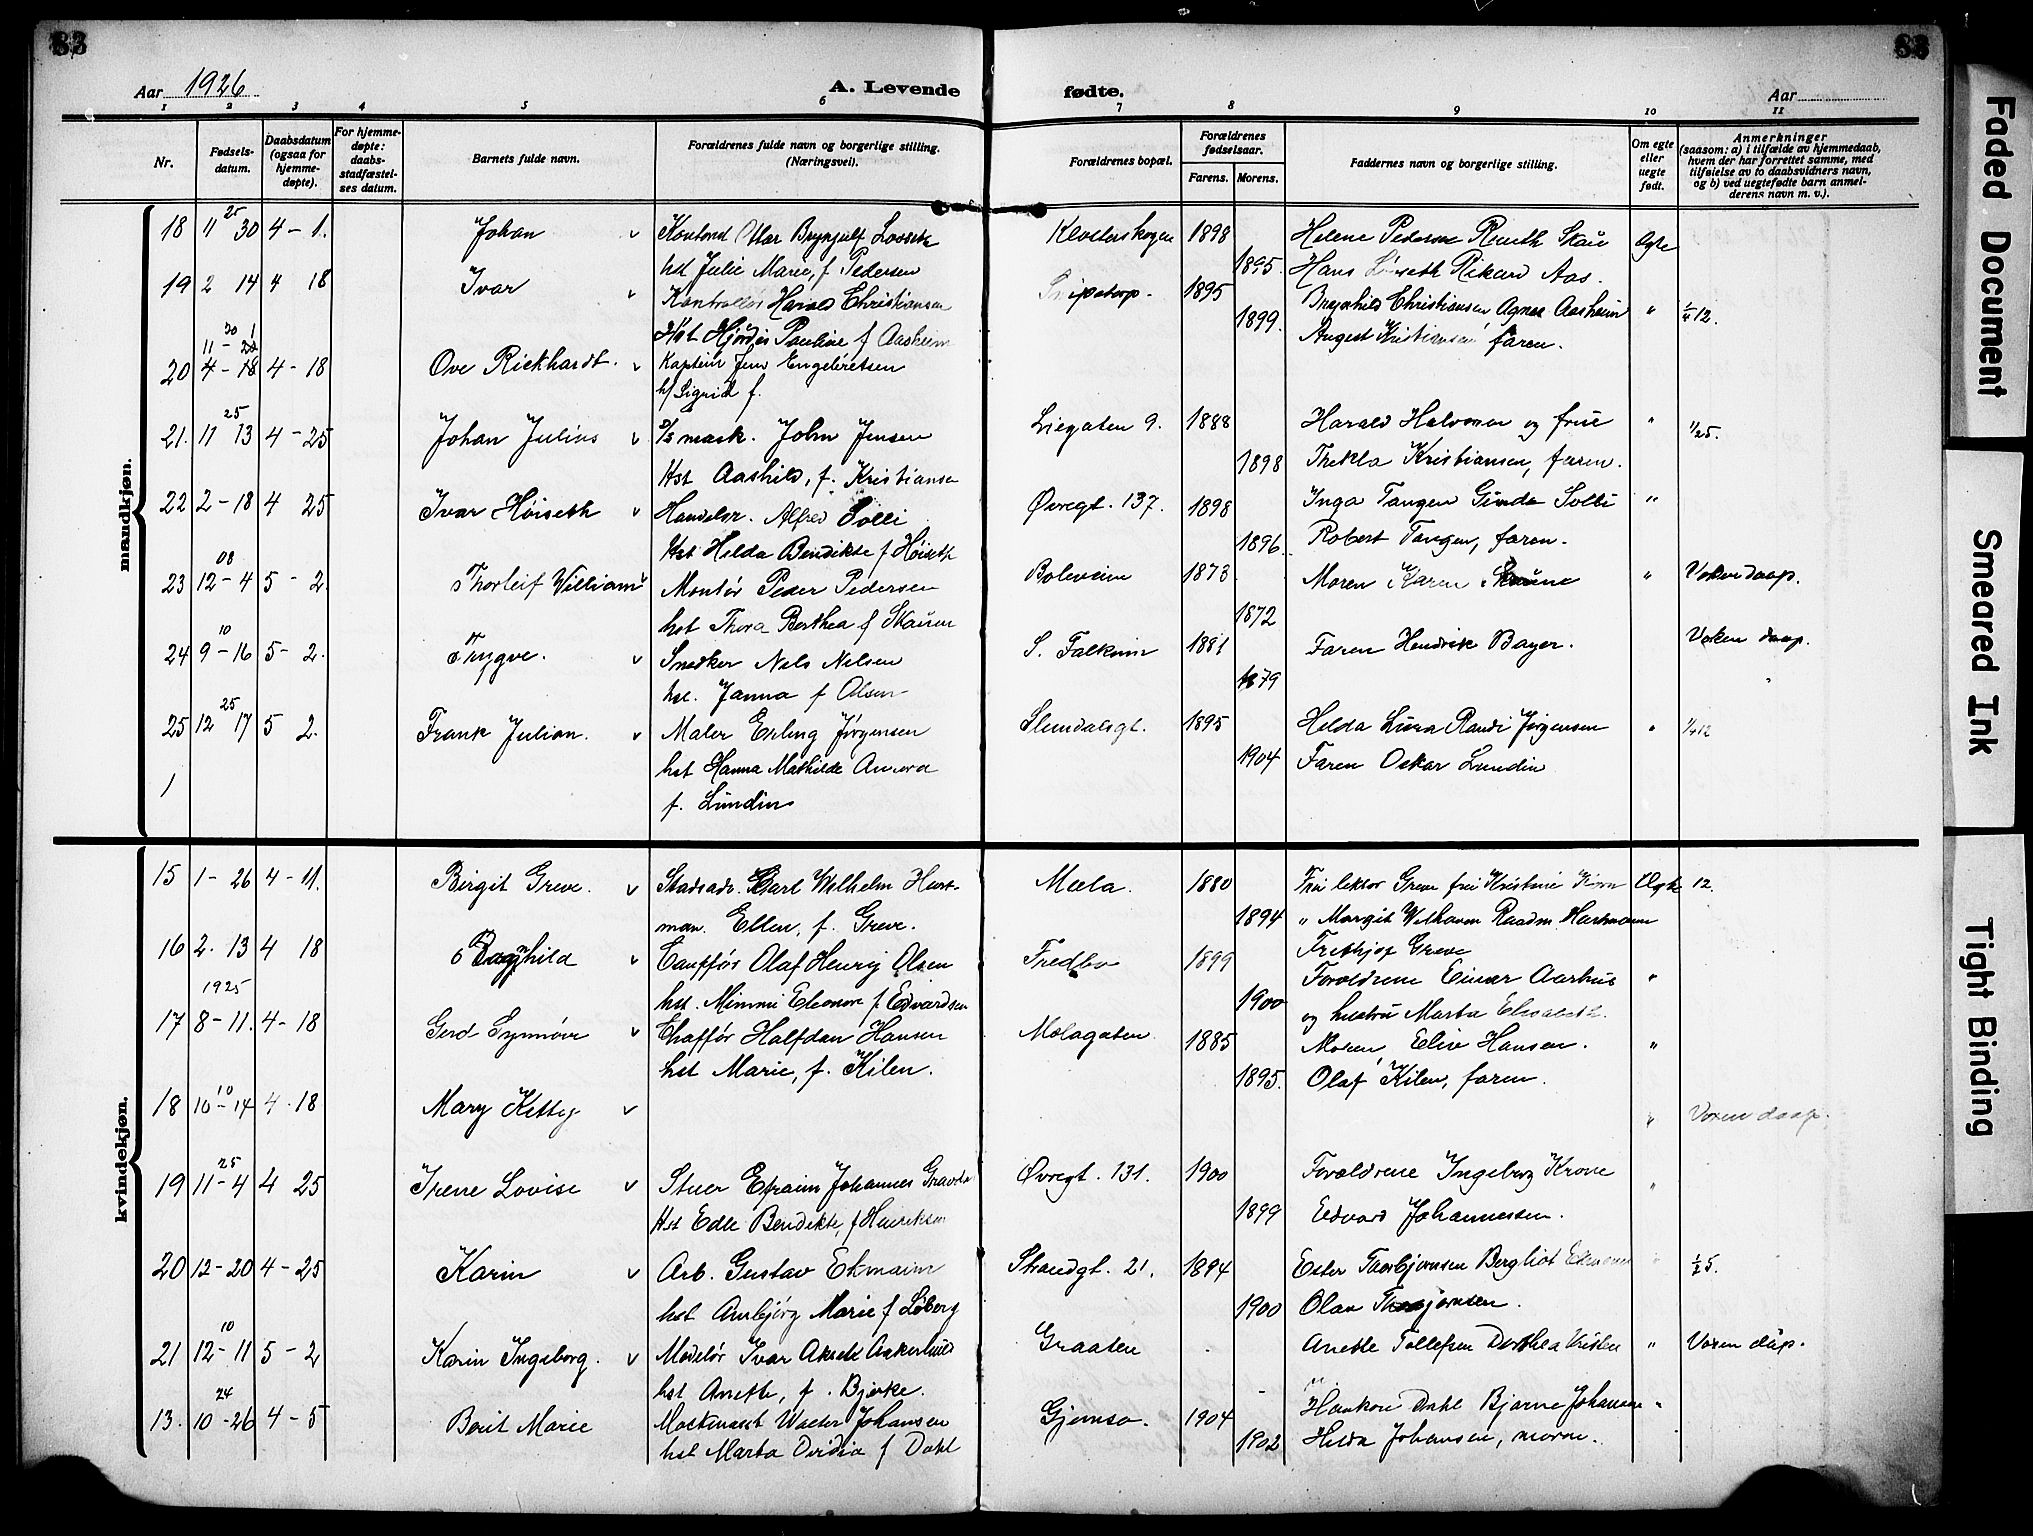 83
83
Aar 1926
A. Levende
fødte.
Aar
1 2 3 4 5 6 7 8 9 10 11
Nr.
Fødsels-
datum.
Daabsdatum
(ogsaa for
hjemme-
døpte).
For hjemme-
døpte:
daabs-
stadfæstel-
ses datum.
Barnets fulde navn.
Forældrenes fulde navn og borgerlige stilling.
(Næringsvei).
Forældrenes bopæl.
Forældrenes
fødselsaar.
Farens. Morens.
Faddernes navn og borgerlige stilling.
Om egte
eller
uegte
født.
Anmerkninger
(saasom: a) i tilfælde av hjemmedaab,
hvem der har forrettet samme, med
tilføielse av to daabsvidners navn,
og b) ved uegtefødte barn anmel-
derens navn m. v.).
mandkjøn.
25
18 11 30 4 - 1. Johan v Brynjulf Klosterskogen 1898 Helene Pedersen Skau Egte
hst Julie Marie, f. Pedersen 1895. Hans Rikard Aas.
19 2 14 4 18 Ivar v Kontrollør Harald Christiansen 1895 Christiansen Agnes Aasheim "
Hst Hjørdis Pauline f Aasheim 1899. August Kristiansen faren.
20 4-18 4-18 Ove Rickhardt. v Kaptein Jens Engebretsen
h/ Sigrid f.
25
21. 11 13 4-25 Johan Julius v mask. John Jensen Liegaten 9. 1888 Harald Halvorsen og frue " 1/25.
Hst Aashild, f. Kristiansen 1898 Thekla Kristiansen, faren.
22 2-18 4 25 Ivar Høiseth v Handelsr. Alfred Solli Øvregt. 137. 1898 Inga Tangen Gunda Solli "
Hst Hilda Bendikte f Høiseth 1896. Robert Tangen, faren.
08
23 12-4 5-2. Thorleif William v Montør Peder Pedersen 1873 Moren Karen "
hst Thora Berthea f Skauen 1872
10
24 9-16 5-2. Trygve. v Snedker Nels Nelsen S. Falkum 1881 Faren Hendrik Bayer. Voken daap.
hst. Janna f Olsen 1879
25
25 12 17 5 2. Frank Julian. v Maler Erling Jørgensen 1895 Hilda Lund Randi Jørgensen "
hst Hanna Mathilde 1904 Faren Oskar Lundin
1 f. Lundin
kvindekjøn.
15 1-26 4-11. Birgit Greve. v Stadsadv. Carl Wilhelm Hart- Mæla. 1880 Fru lektor Greve fru Kristine Egte 12.
man. Ellen, f. Greve. 1894 " Margit Welhaven Raadm. Hartmann
16 2. 13 4 18 v Olaf Henry Olsen Fredbo 1899 Frithjof Greve
Forældrene Einar Aarhus "
1925 hst. Mimmi Eleonore f Edvardsen 1900 og hustru Marta Elisabeth.
17 8-11. 4-18 Gerd Synnøve v Chaffør Halfdan Hansen Mælagaten 1885 Moren, Elise Hansen. "
hst Marie, f. Kilen. 1895. Olaf Kilen, faren.
10
18 10-14 4-18 Mary v " Voxen daap.
25
19 11-4 4 25 Irene Lovise v Stuer Efraim Johannes Øvregt. 131. 1900 Forældrene Ingeborg Krone "
Hst Edle Bendikte, f Henriksen 1899 Edvard Johannessen.
20 12-20 4-25 Karin v Arb. Gustav Ekmann Strandgt. 21. 1894 Ester Thorbjørnsen Bergliot "
hst Marie f Løberg 1900 Olav
10
21 12-11 5-2 Karin Ingeborg. v Ivar Graaten Anette Tollefsen Dorthea " Voxen dåp.
hst Anette, f. Bjerke.
24
13. 10-26 4-5 Berit Marie Johansen Gjemsø. 1904 Haakon Dahl Bjarne Johansen "
hst Marta f Dahl 1902 Hilda Johansen, moren.
Faded Document
Smeared Ink
Tight Binding